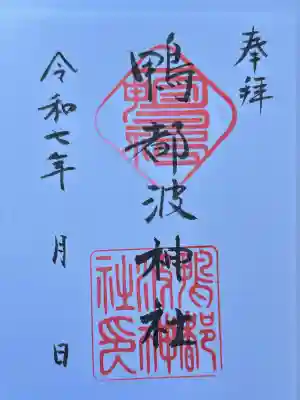 奉拝
鴨都波神社
令和七年 月 日
鴨都波神社印